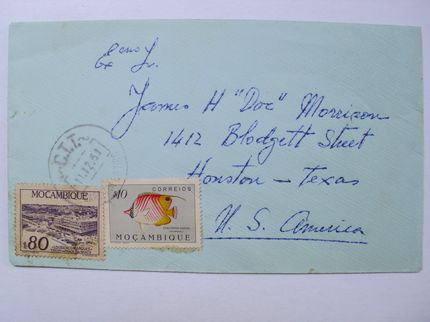 Exmo Sr.
James H "Doc" Morrison
1412 Blodgett Street
Houston - Texas
U. S. America
C.T.T.
MOÇAMBIQUE
$80
$10
CORREIOS
MOÇAMBIQUE